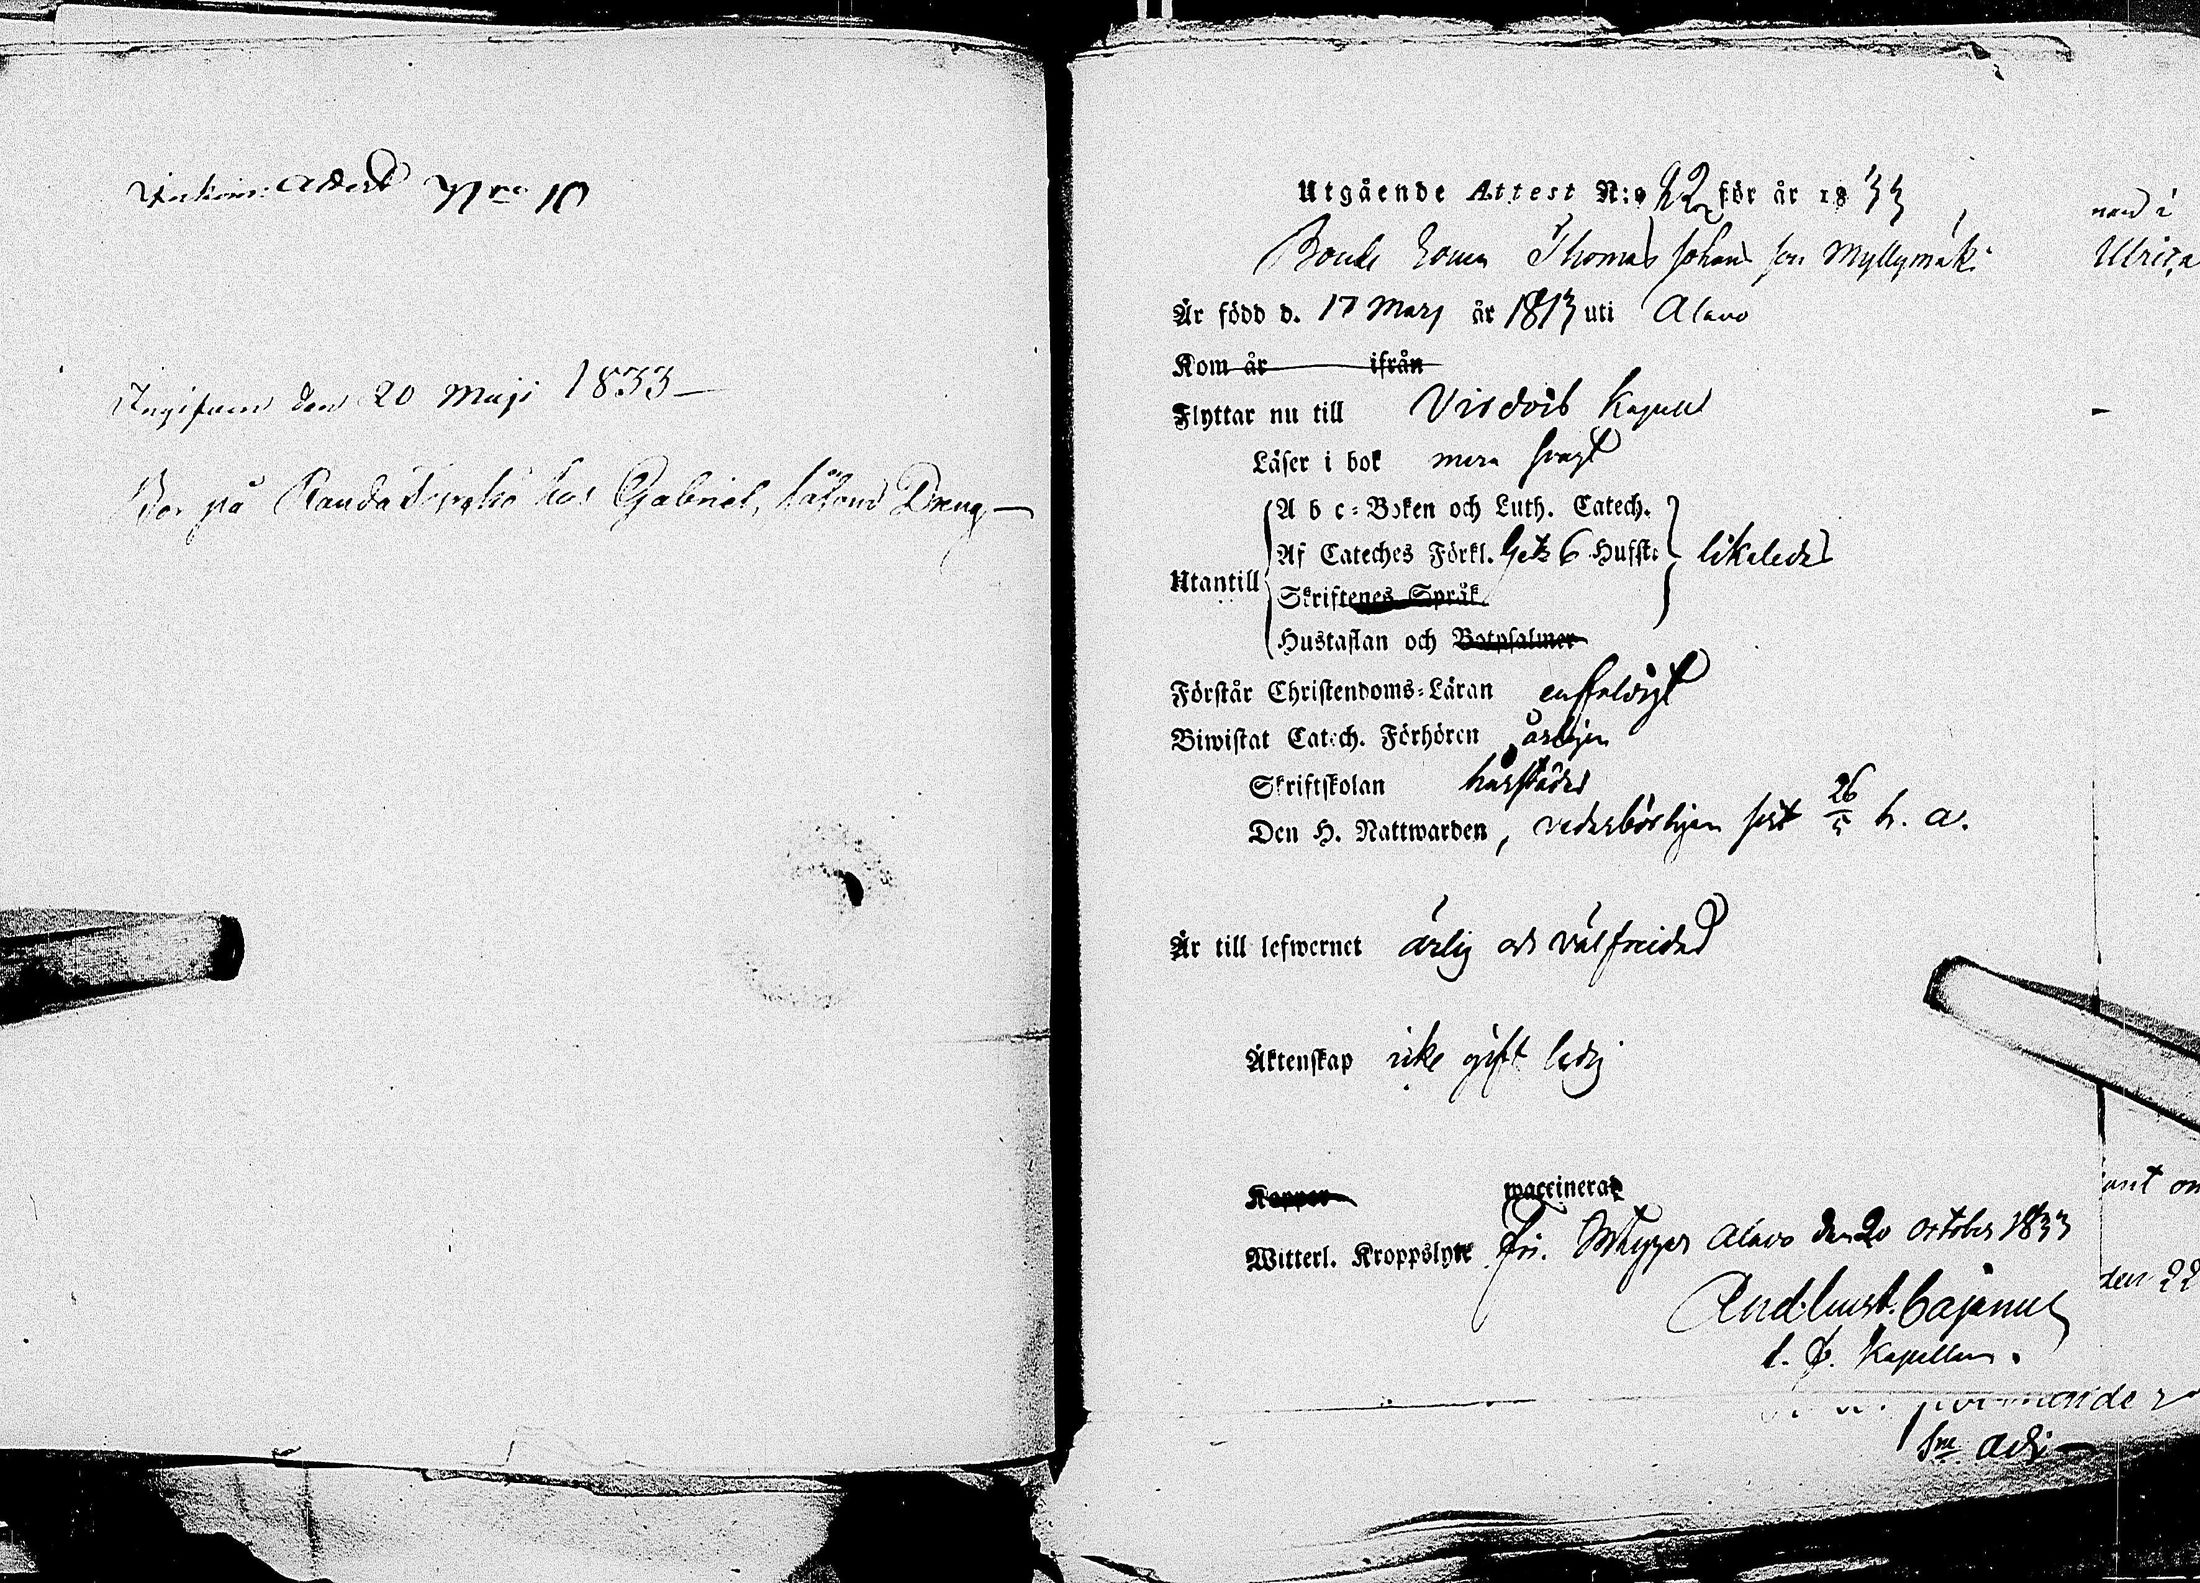 Attest Nro 10
Ingifven den 20 Maji 1833
Bor på hos Gabriel, såsom Dreng
Utgående Attest N:o 22 för år 1833
Bonde Sonen Thomas Johans son Myllymäki
Är född d. 17 Mars år 1813 uti Alavo
Kom år ifrån
Flyttar nu till Kapell
Läser i bok mera svagt
A b c-Boken och Luth. Catech.
Af Cateches Förkl. 6 Hufst. likaledes
Utantill
Skriftenes Språk
Hustaflan och Botpsalmer
Förstår Christendoms-Läran enfaldigt
Biwistat Catech. Förhören årligen
Skriftskolan härstädes
Den H. Nattwarden, vederbörligen sist 26/5 h. a.
Är till lefwernet ärlig och välfrejdad
Äktenskap icke gift ledig
Koppor waccinerad
Witterl. Kroppslyte fri. Alavo den 20 October 1833
And. Gust. Cajanus
Kapellan.
nens i
Ulrica
den 22